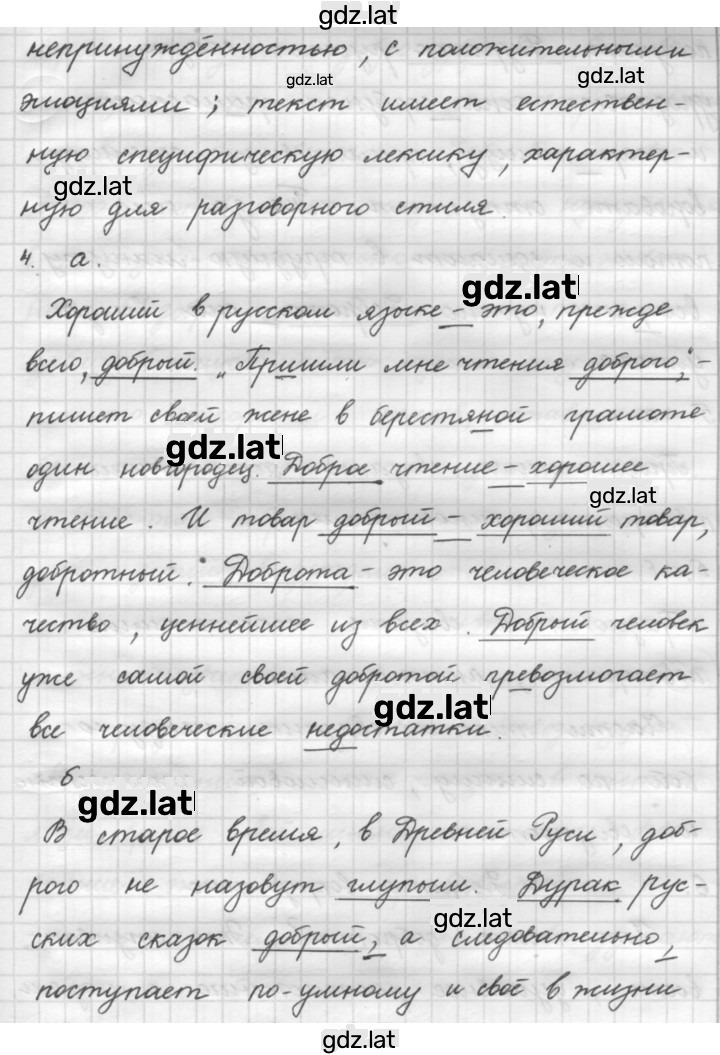 gdz.lat
непринуждённостью, с положительными
gdz.lat
gdz.lat
эмоциями; текст имеет естествен-
ную специфическую лексику, характер-
gdz.lat
ную для разговорного стиля.
4. а.
gdz.lat
Хороший в русском языке - это, прежде
всего, добрый. „Пришли мне чтения доброго," -
пишет своей жене в берестяной грамоте
gdz.lat
один новгородец. Доброе чтение - хорошее
gdz.lat
чтение. И товар добрый - хороший товар,
добротный. Доброта - это человеческое ка-
чество, ценнейшее из всех. Добрый человек
уже самой своей добротой превозмогает
gdz.lat
все человеческие недостатки.
б
gdz.lat
В старое время, в Древней Руси, доб-
рого не назовут глупым. Дурак рус-
gdz.lat
ских сказок добрый, а следовательно,
поступает по-умному и своё в жизни
gdz.lat